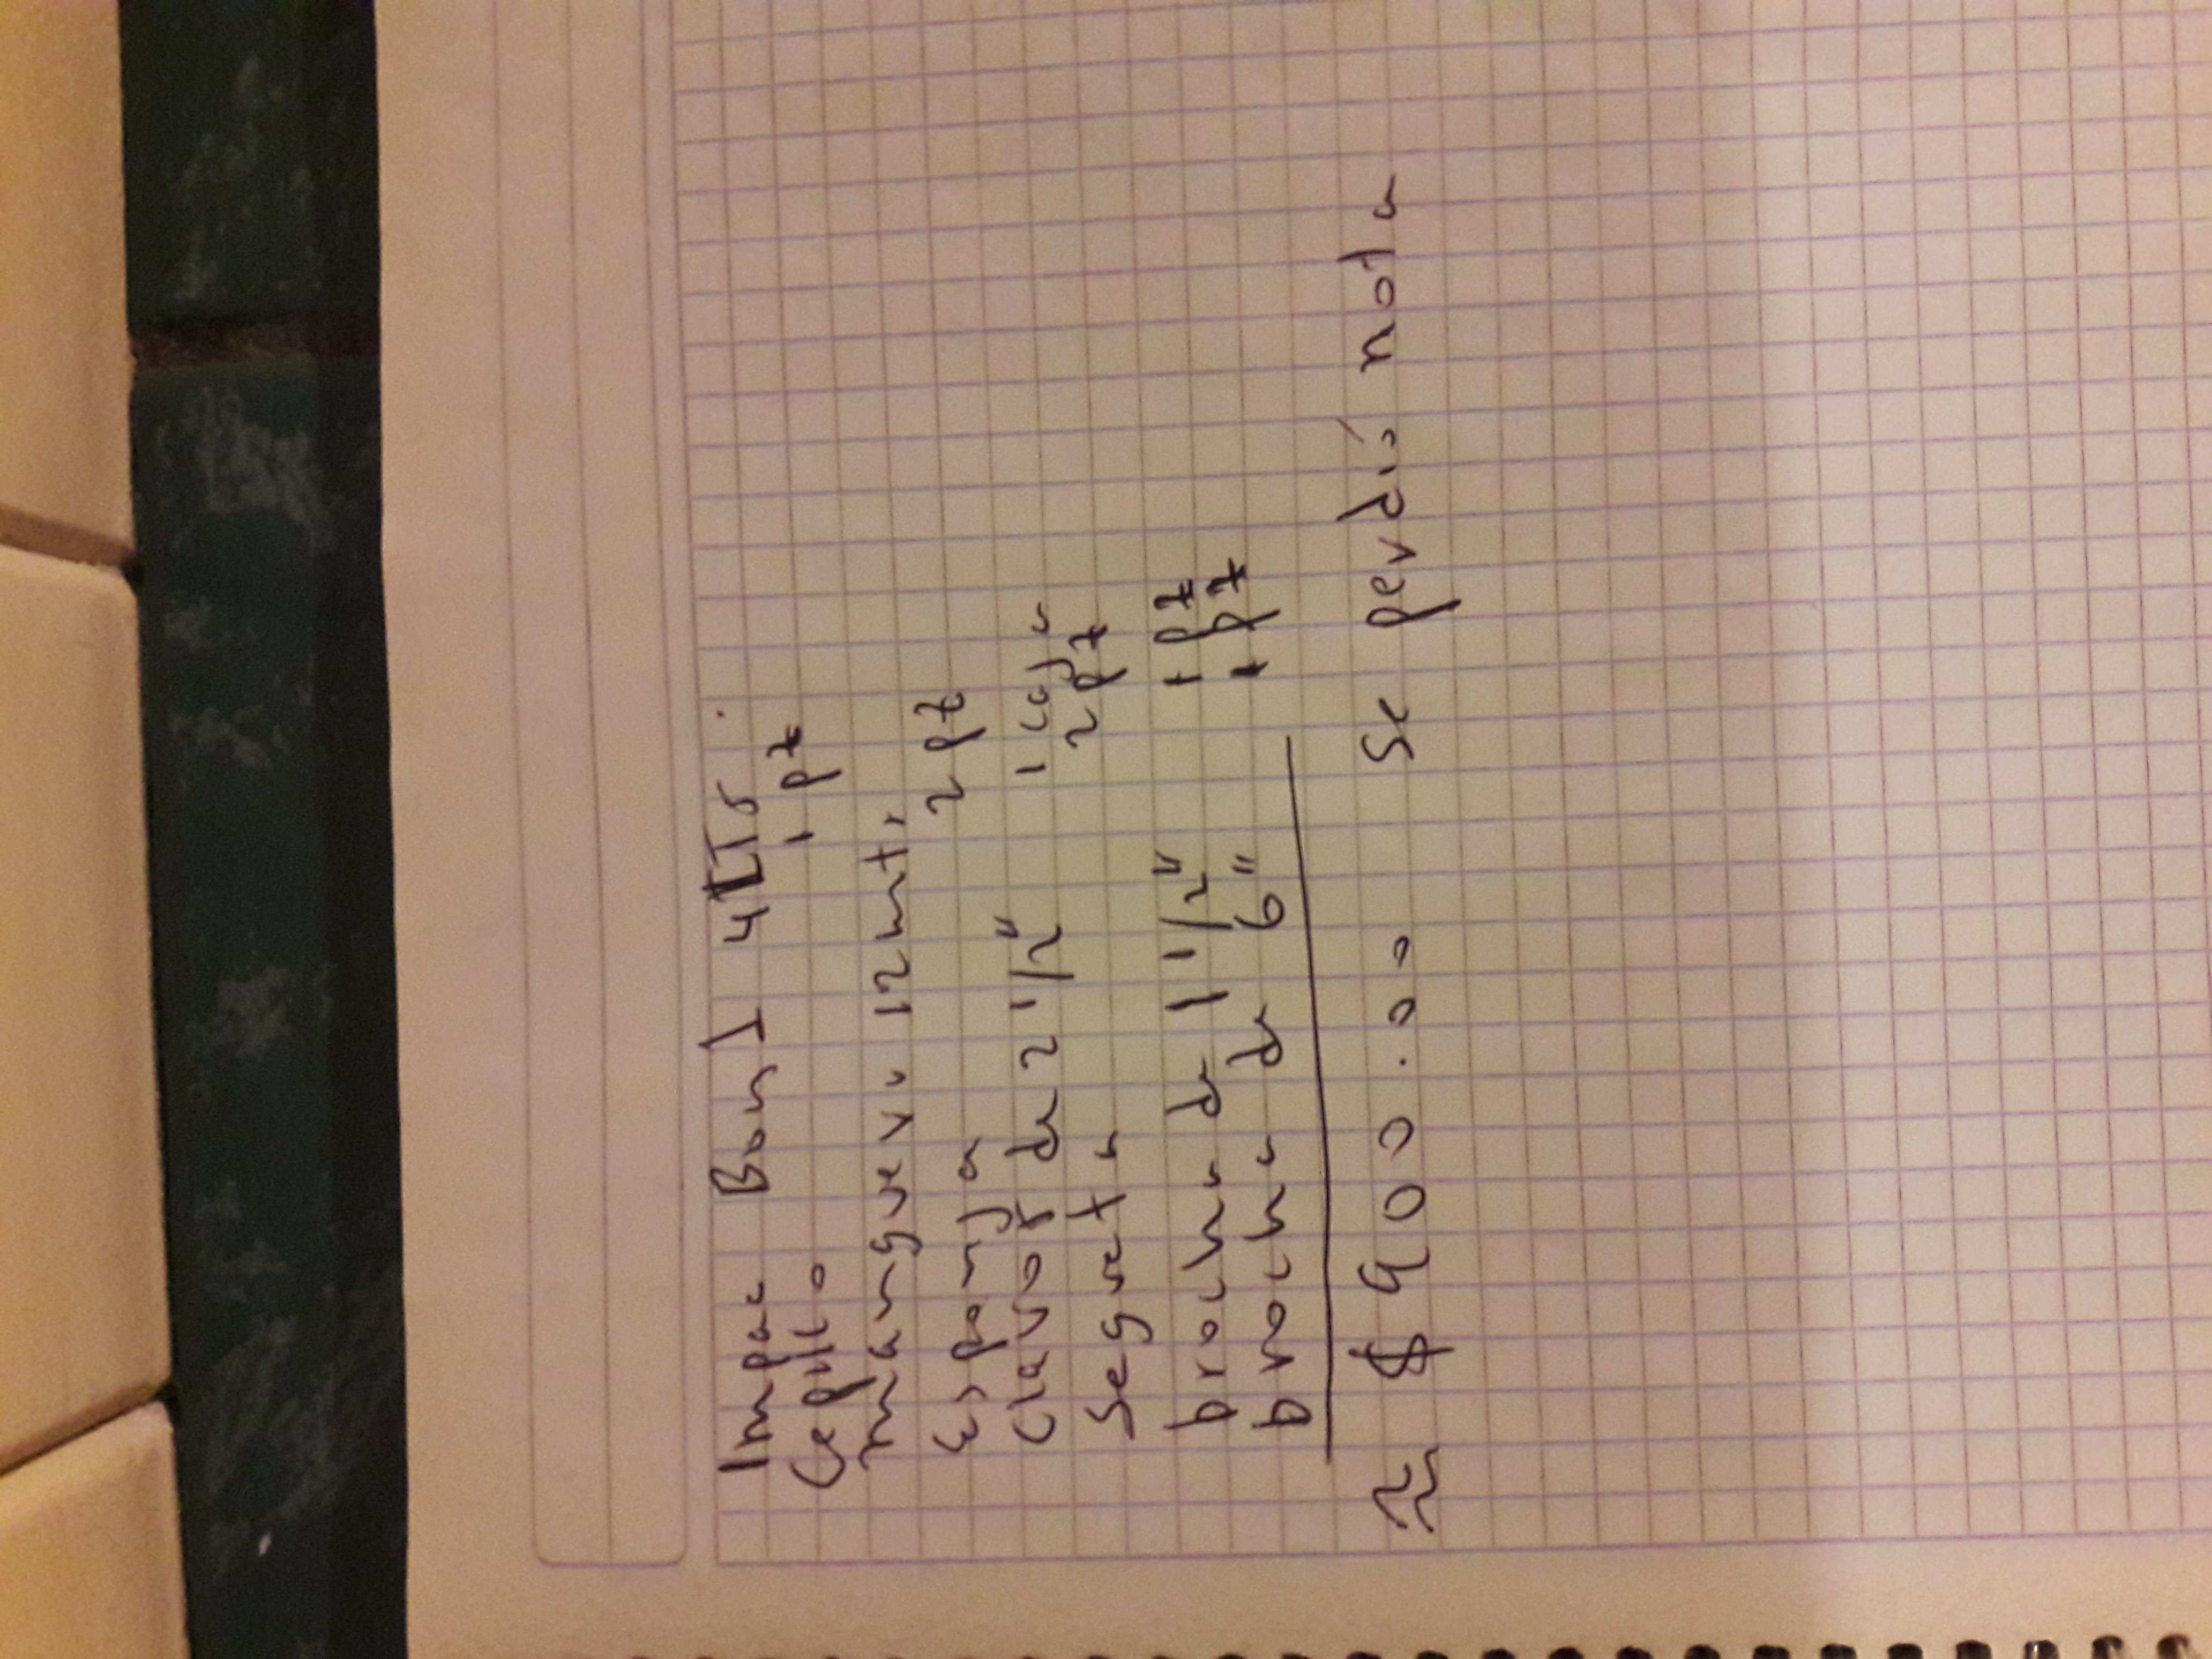 Impac Bond 4LTS.
Cepillo 1 pz
manguera 12 mts
Esponja 2 pz
Clavos de 2 1/2" 1 caja
Segueta 2 pz
brocha de 1 1/2" 1 pz
brocha de 6" 1 pz
≈ $900.00 Se perdió nota